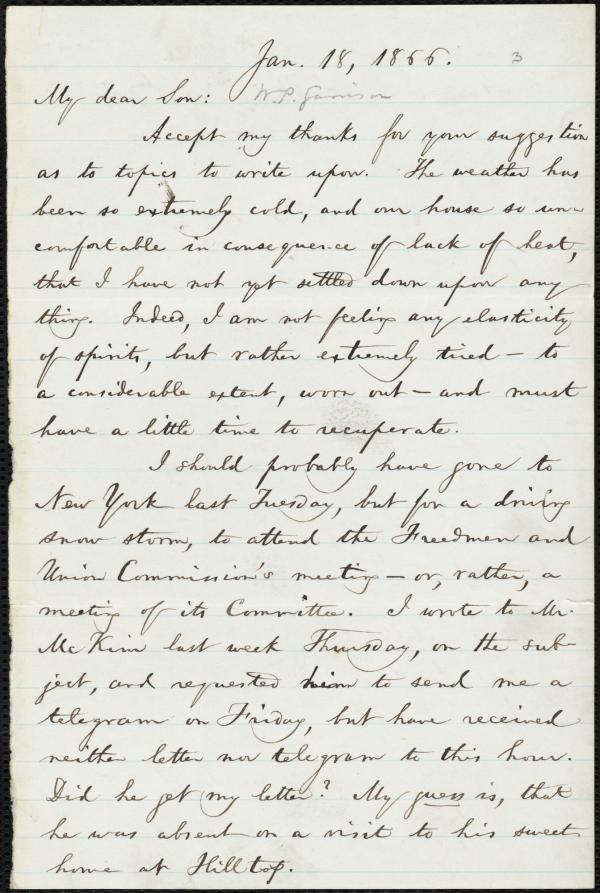 Jan. 18, 1866. 3
My dear Son: W. P. Garrison
Accept my thanks for your suggestion
as to topics to write upon. The weather has
been so extremely cold, and our house so un-
comfortable in consequence of lack of heat,
that I have not yet settled down upon any
thing. Indeed, I am not feeling any elasticity
of spirits, but rather extremely tired — to
a considerable extent, worn out — and must
have a little time to recuperate.
I should probably have gone to
New York last Tuesday, but for a driving
snow storm, to attend the Freedmen and
Union Commission's meeting — or, rather, a
meeting of its Committee. I wrote to Mr.
McKim last week Thursday, on the sub-
ject, and requested him to send me a
telegram on Friday, but have received
neither letter nor telegram to this hour.
Did he get my letter? My guess is, that
he was absent on a visit to his sweet
home at Hilltop.